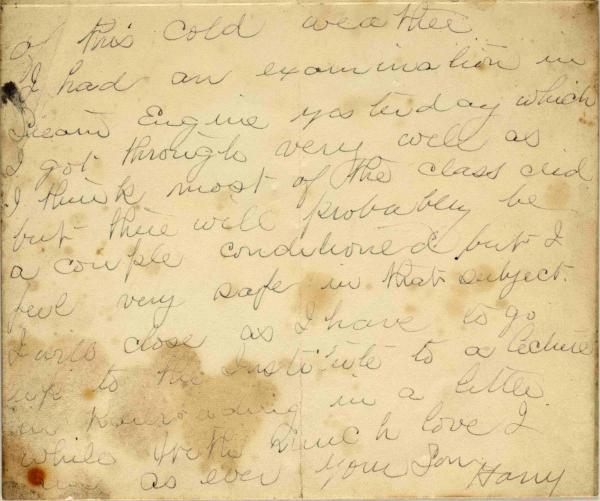 of this cold weather
I had an examination in
Steam Engine yesterday which
I got through very well as
I think most of the class did
but there will probably be
a couple conditioned but I
feel very safe in that subject.
I will close as I have to go
up to the Institute to a lecture
in in a little
while With much love I
as ever your Son Harry